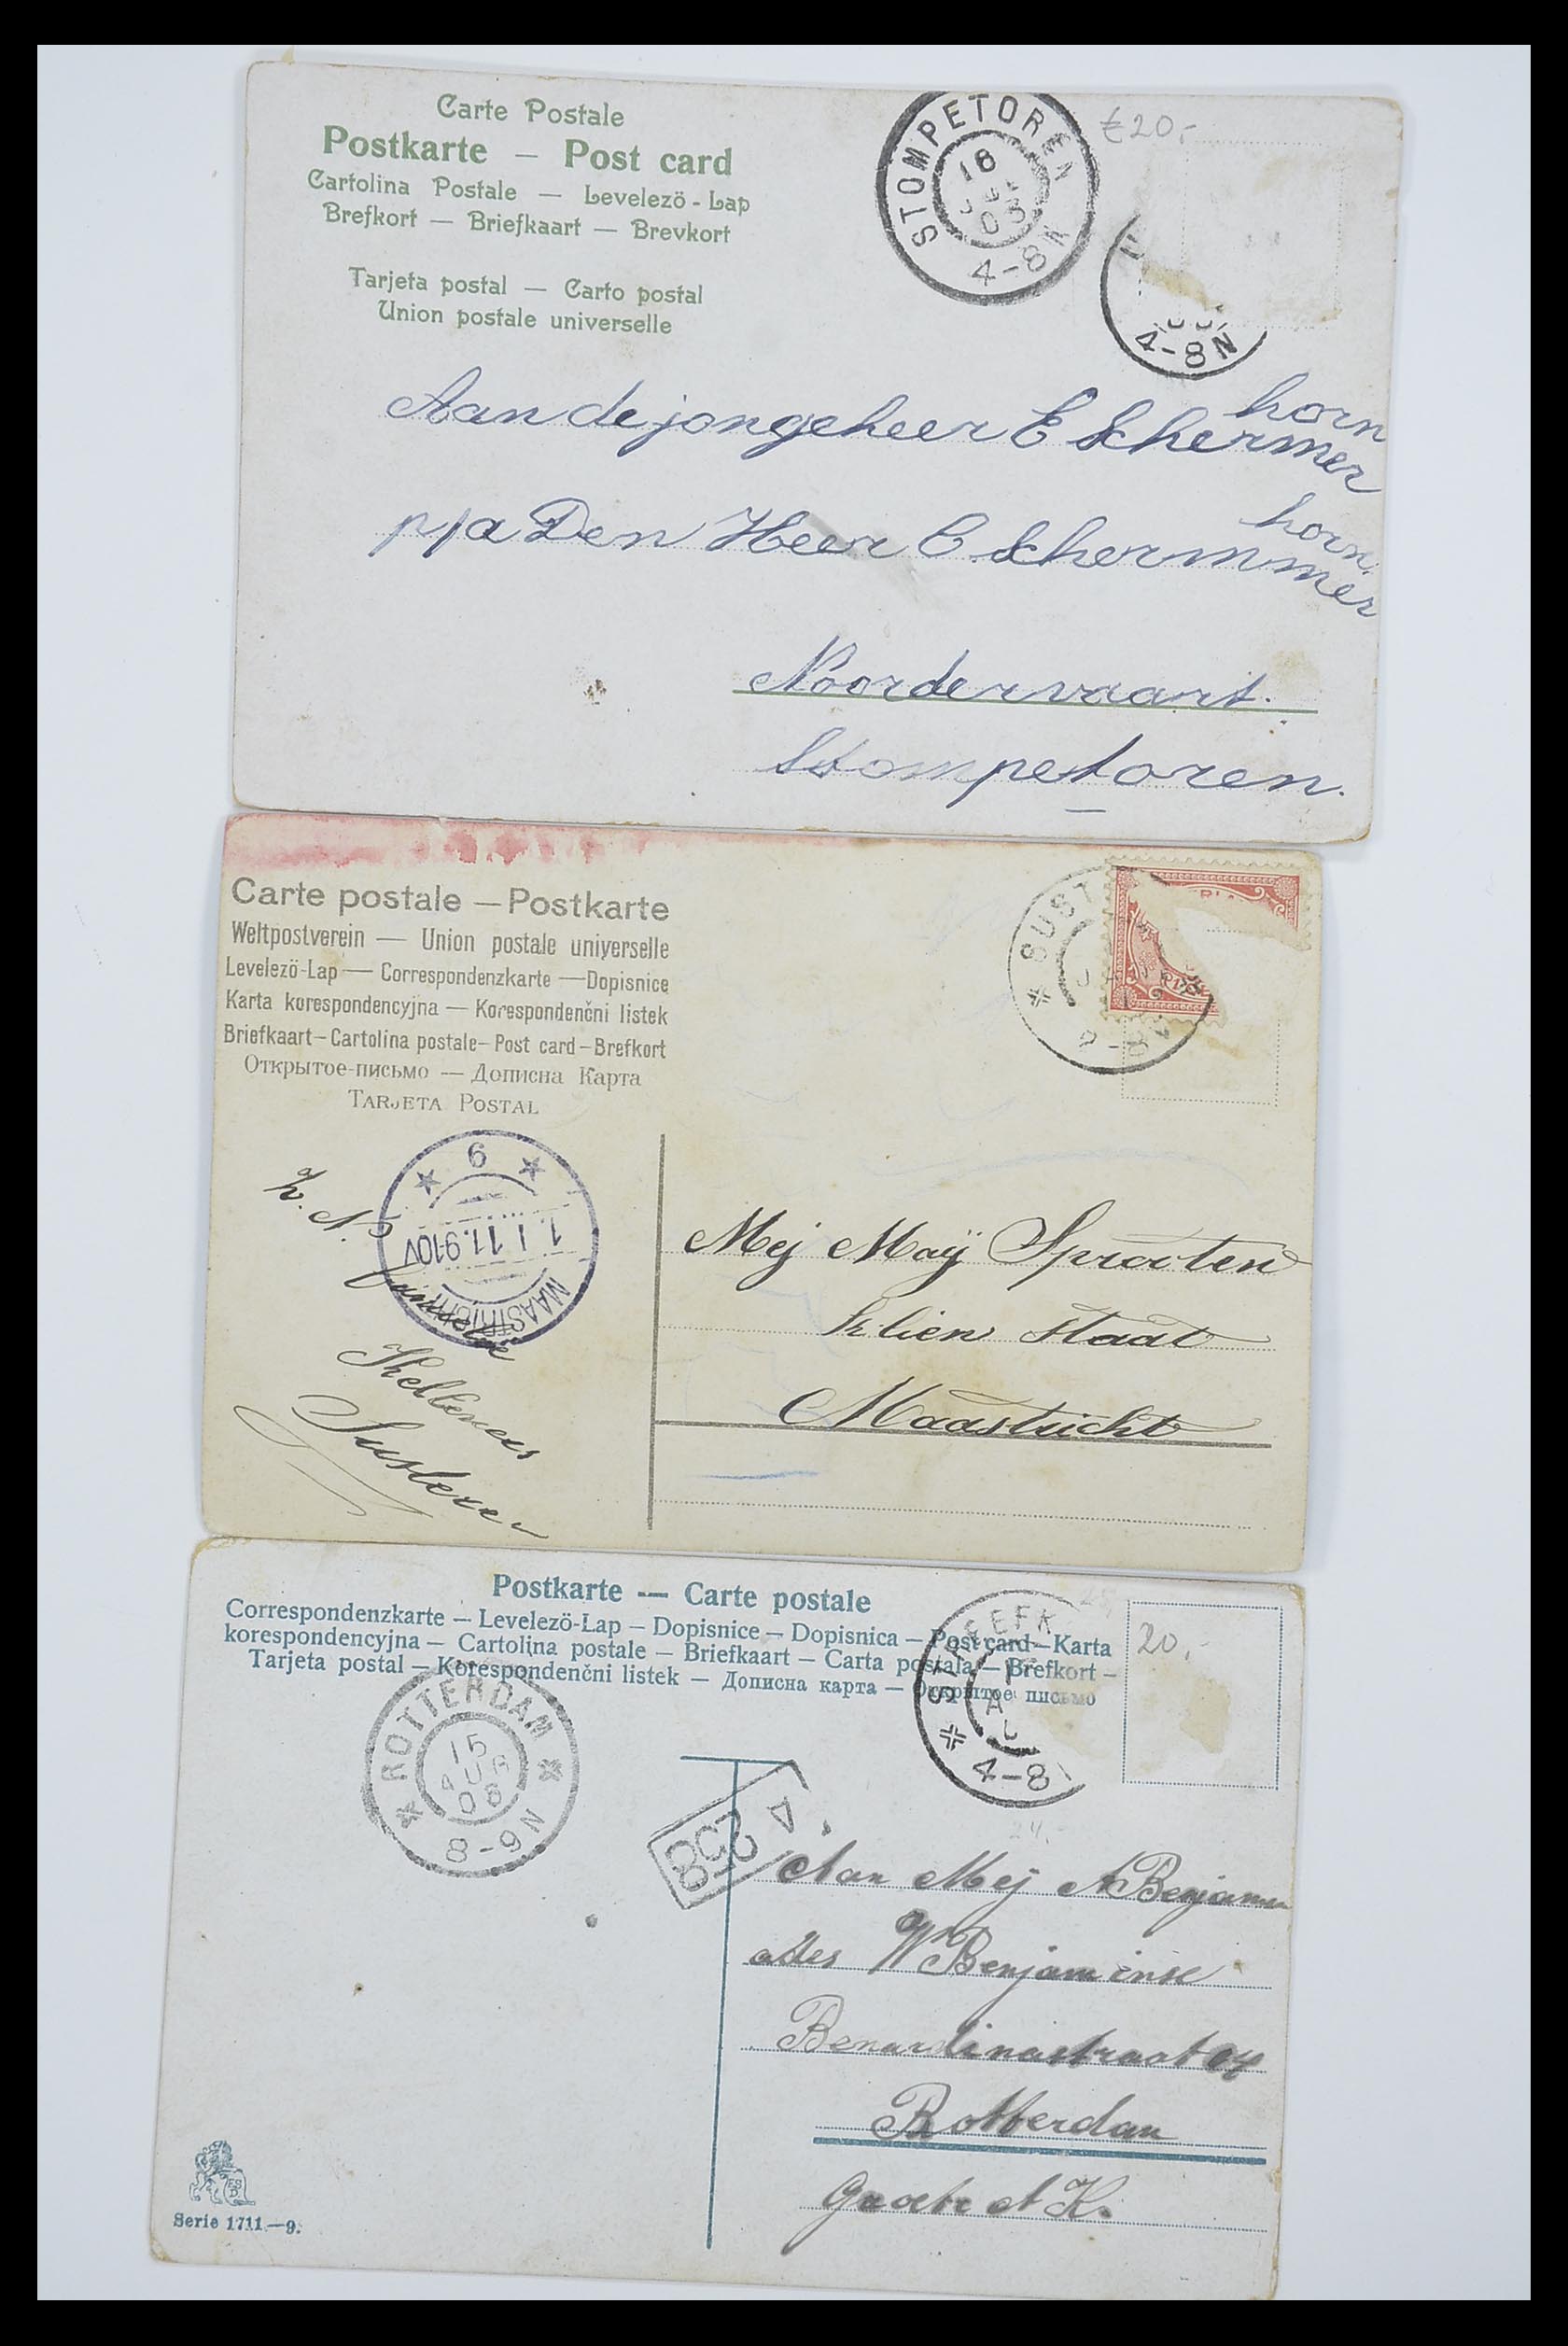 Carte Postale
Postkarte — Post card
Cartolina Postale — Levelezö - Lap
Brefkort — Briefkaart — Brevkort
Tarjeta postal — Carto postal
Union postale universelle
STOMPETOREN
16
03
4-8N
€20,-
4-8N
Aan de jongeheer E Schermer
horn
p/a Den Heer C Schermmer
horn
Noordervaart.
Stompetoren.
Carte postale — Postkarte
Weltpostverein — Union postale universelle
Levelezö-Lap — Correspondenzkarte — Dopisnice
Karta korespondencyjna — Korespondenční listek
Briefkaart — Cartolina postale — Post card — Brefkort
Открытое-письмо — Дописна Карта
TARJETA POSTAL
SUST
MAASTRICHT
1.1.11.9-10V
6
Z. N.
familie
Susteren
Mej Maÿ Sprooten
Klien Staat
Maastricht
Postkarte — Carte postale
Correspondenzkarte — Levelezö-Lap — Dopisnice — Dopisnica — Post card — Karta
korespondencyjna — Cartolina postale — Briefkaart — Carta postala — Brefkort —
Tarjeta postal — Korespondenční listek — Дописна карта — Открытое письмо
20,-
ROTTERDAM
15
AUG
08
8-9N
4-8
A
258
Aan Mej A Benjamin
W Benjaminse
Rotterdam
Groete A K.
Serie 1711.—9.